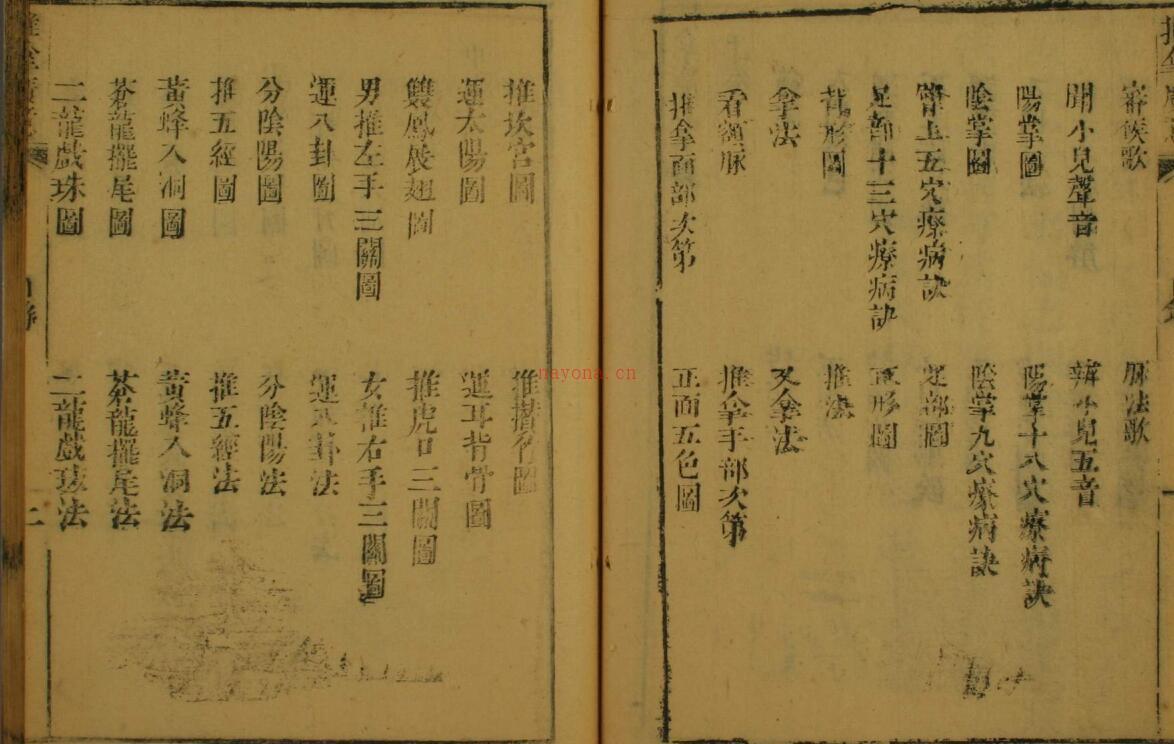 審候歌 脉法歌
聞小兒聲音 辨小兒五音
陽掌圖 陽掌十八穴療病訣
陰掌圖 陰掌九穴療病訣
臂上五穴療病訣 足部圖
足部十三穴療病訣 正形圖
背形圖 推法
拿法 又拿法
看額脉 推拿手部次第
推拿面部次第 正面五色圖
推坎宮圖 推攅竹圖
運太陽圖 運耳背骨圖
雙鳳展翅圖 推虎口三關圖
男推左手三關圖 女推右手三關圖
運八卦圖 運八卦法
分陰陽圖 分陰陽法
推五經圖 推五經法
黃蜂入洞圖 黃蜂入洞法
蒼龍擺尾圖 蒼龍擺尾法
二龍戲珠圖 二龍戲珠法
nayona.cn